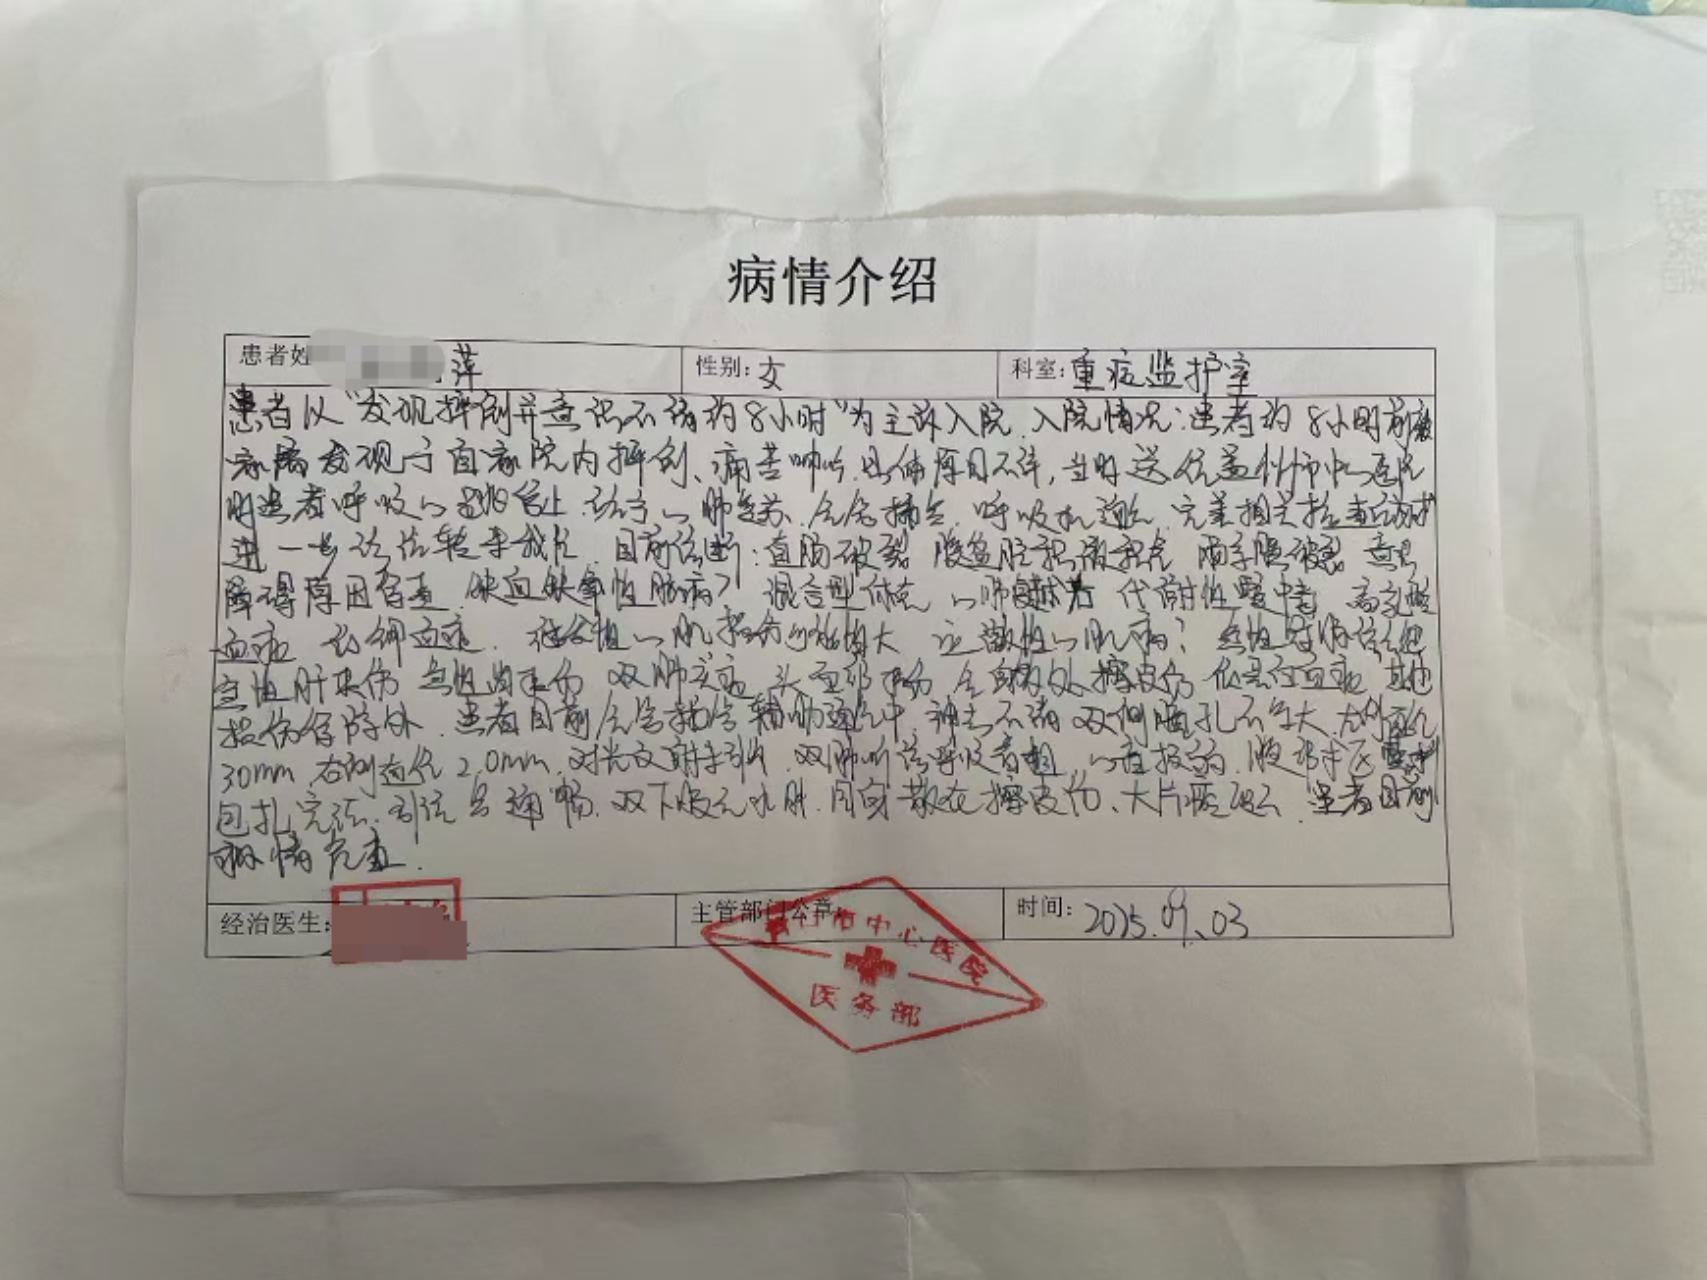 病情介绍
患者姓 萍 性别: 女 科室: 重症监护室
患者以"发现摔倒并意识不清约8小时"为主诉入院.入院情况:患者约8小时前被
家属发现于自家院内摔倒、痛苦呻吟.具体原因不详,当时送 盖州市中心医院
时患者呼吸心跳停止.给予心肺复苏、气管插管.呼吸机 完善相关检查后
进一步诊治转来我院.目前诊断:直肠破裂 腹盆腔积液积气 膈破裂 意识
障碍原因待查.缺血缺氧性脑病? 混合型休克 心肺复苏后 代谢性酸中毒 高乳酸
血症 钾血症. 继发性心肌损伤 应激性心肌病? 急性胃肠
急性肝损伤 急性肾损伤 双肺 头面部外伤 全身多处擦皮伤 低蛋白血症 其他
损伤待除外.患者目前气管插管辅助通气中.神志不清 双侧瞳孔不等大.左侧直径
30mm.右侧直径2.0mm.对光反射未引出.双肺听诊呼吸音粗.心音 .腹部术区
包扎完 .引流 通畅.双下肢无水肿.周身散在擦皮伤、大片瘀 .患者目前
病情危重.
经治医生: 主管部门公章 时间: 2025.09.03
市中心医院
医务部